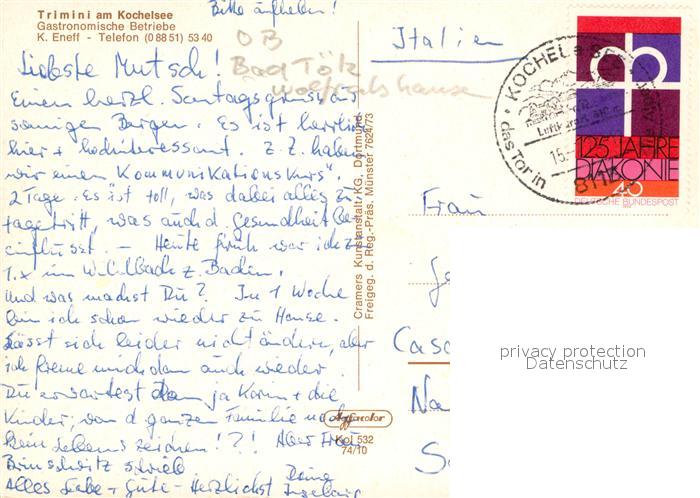 Trimini am Kochelsee
Gastronomische Betriebe
K. Eneff - Telefon (0 88 51) 53 40
Bitte aufheben!
OB
Bad Tölz
Wolfratshausen
Italien
Liebste Mutsch!
Einen herzl. Sonntagsgruss aus
sonnigen Bergen. Es ist herrlich
hier + hochinteressant. Z. Z. haben
wir einen "Kommunikationskurs".
2 Tage. Es ist toll, was dabei alles zu
tage tritt, was auch d. Gesundheit be-
einflusst - Heute früh war ich z.
1. x im Wildbach z. Baden.
Und was machst Du? In 1 Woche
bin ich schon wieder zu Hause.
Lässt sich leider nicht ändern, aber
ich freue mich dann auch wieder.
Du erwartest ja Karin + die
Kinder, von d. ganzen Familie noch
kein Lebenszeichen!?! Aber Frau
schrieb
Alles Liebe + Gute - Herzlichst Deine
Cramers Kunstanstalt KG, Dortmund
Freigeg. d. Reg.-Präs. Münster 7624/73
Agfacolor
Kol 532
74/10
KOCHEL a. SEE
Luftkurort
das Tor in
15.
8113
125 JAHRE
DIAKONIE
40
DEUTSCHE BUNDESPOST
Frau
Casa
Na
privacy protection
Datenschutz